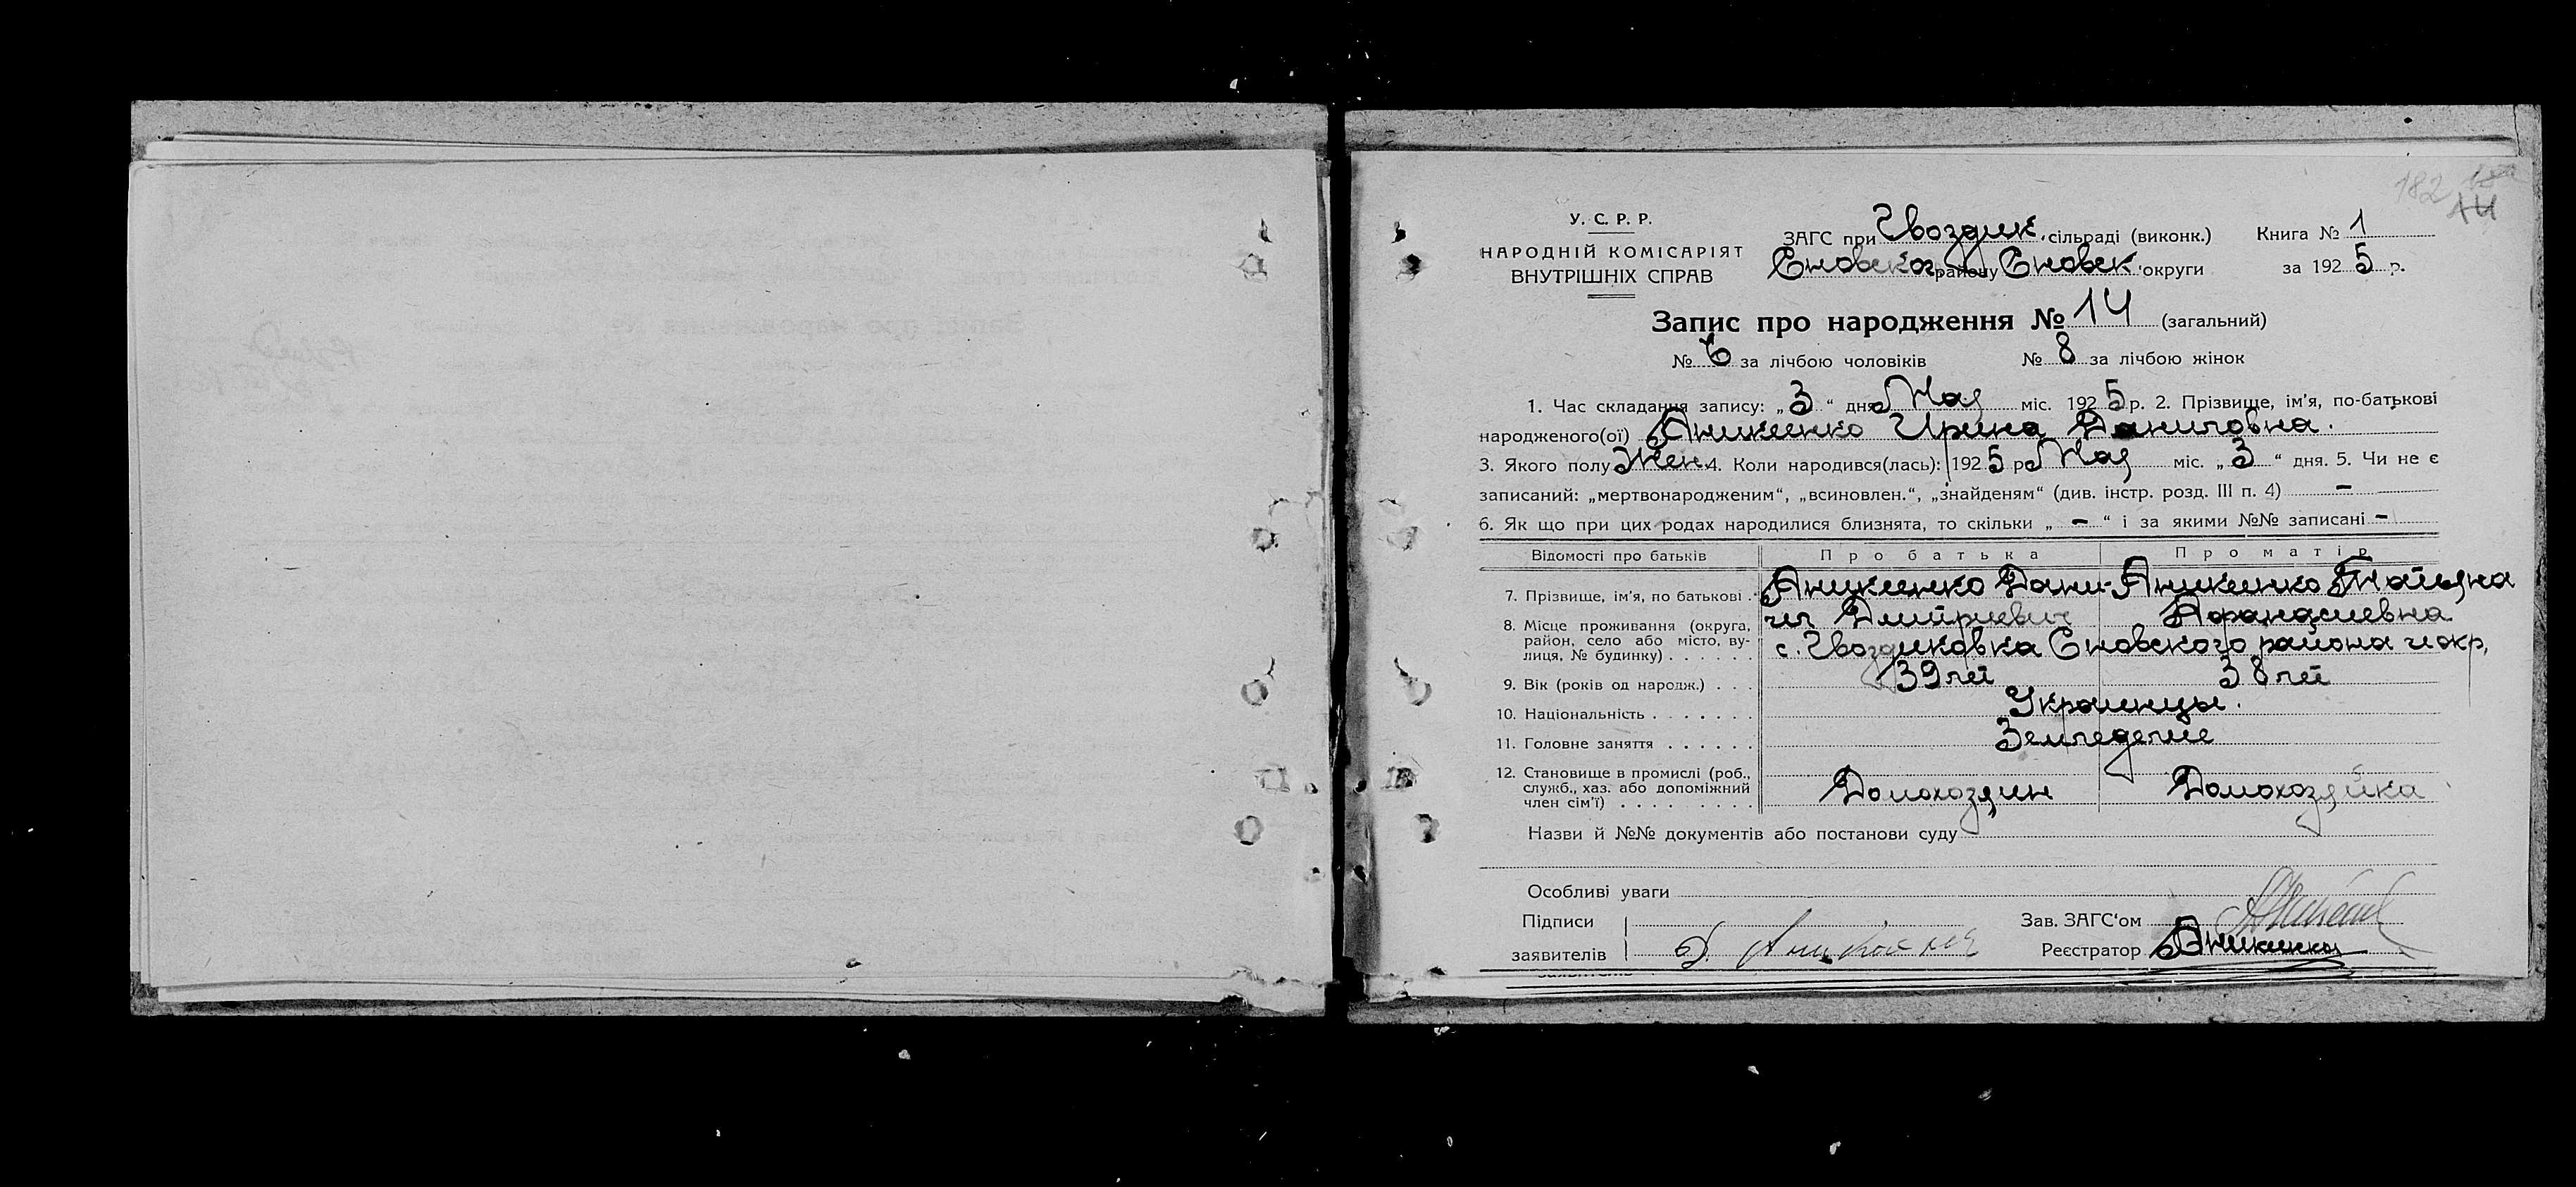 182
14
У. С. Р. Р.
НАРОДНІЙ КОМІСАРІЯТ
ВНУТРІШНІХ СПРАВ
ЗАГС при Гвоздик. сільраді (виконк.) Книга № 1
Сновског району Сновск. округи за 1925 р.
Запис про народження № 14 (загальний)
№ 6 за лічбою чоловіків № 8 за лічбою жінок
1. Час складання запису: „ 3 “ дня Мая міс. 1925 р. 2. Прізвище, ім'я, по-батькові
народженого(ої) Аникиенко Ирина Даниловна.
3. Якого полу Жен. 4. Коли народився(лась): 1925 р. Мая міс. „ 3 “ дня. 5. Чи не є
записаний: „мертвонародженим“, „всиновлен.“, „знайденям“ (див. інстр. розд. III п. 4) –
6. Як що при цих родах народилися близнята, то скільки „ – “ і за якими №№ записані –
Відомості про батьків Про батька Про матір
7. Прізвище, ім'я, по батькові . Аникиенко Дани- Аникиенко Татьяна
ил Дмитриевич Афанасиевна
8. Місце проживання (округа,
район, село або місто, ву-
лиця, № будинку) . . . . . . с. Гвоздиковка Сновского района и окр,
9. Вік (років од народж.) . . . 39 лет 38 лет
10. Національність . . . . . . . Украинцы.
11. Головне заняття . . . . . . Земледелие
12. Становище в промислі (роб.,
служб., хаз. або допоміжний
член сім'ї) . . . . . . . . Домохозяин Домохозяйка
Назви й №№ документів або постанови суду
Особливі уваги
Підписи Зав. ЗАГС'ом
заявителів Д. Реєстратор Аникиенко